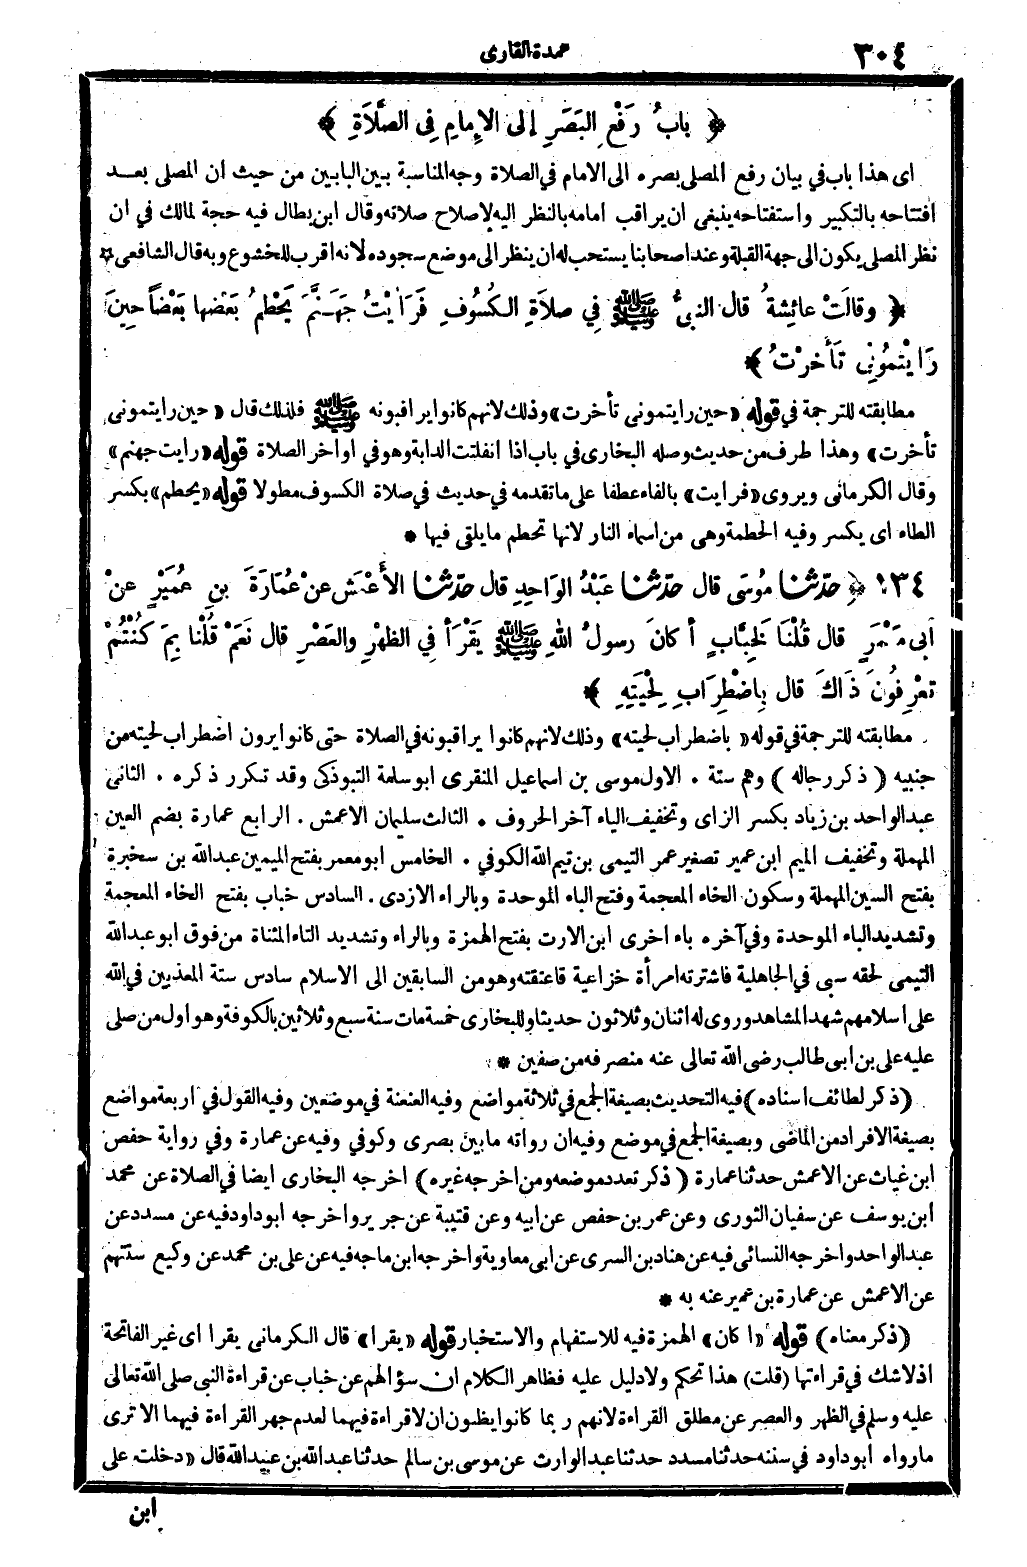 ٣٠٤
عمدة القارى
﴿ بابُ رَفْعِ البَصَرِ إلى الإِمامِ فِي الصَّلَاةِ ﴾
اى هذا باب في بيان رفع المصلى بصره الى الامام في الصلاة وجه المناسبة بين البابين من حيث ان المصلى بعد
افتتاحه بالتكبير واستفتاحه ينبغى ان يراقب امامه بالنظر اليه لاصلاح صلاته وقال ابن بطال فيه حجة لمالك في ان
نظر المصلى يكون الى جهة القبلة وعند اصحابنا يستحب له ان ينظر الى موضع سجوده لانه اقرب للخشوع وبه قال الشافعى *
﴿ وقالَتْ عائِشةُ قال النبىُّ ﷺ فِي صلاَةِ الكُسُوفِ فَرَأيْتُ جَهَنَّمَ يَحْطِمُ بَعْضُها بَعْضاً حِينَ
رَأيْتمُونِي تَأخرْتُ ﴾
مطابقته للترجمة في قوله «حين رايتمونى تأخرت» وذلك لانهم كانوا يراقبونه ﷺ فلذلك قال «حين رايتمونى
تأخرت» وهذا طرف من حديث وصله البخارى في باب اذا انفلتت الدابة وهو في اواخر الصلاة قوله «رايت جهنم»
وقال الكرمانى ويروى «فرايت» بالفاء عطفا على ما تقدمه في حديث في صلاة الكسوف مطولا قوله «يحطم» بكسر
الطاء اى يكسر وفيه الحطمة وهى من اسماء النار لانها تحطم ما يلقى فيها *
١٣٤ ﴿ حدّثنا مُوسَى قال حدّثنا عَبْدُ الوَاحِدِ قال حدّثنا الأعْمَشُ عنْ عُمَارَةَ بنِ عُمَيْرٍ عنْ
أبى مَعْمَرٍ قال قُلْنَا لِخَبَّابٍ أكانَ رسولُ اللهِ ﷺ يَقْرَأُ فِي الظهْرِ والعَصْرِ قال نَعَمْ قُلْنا بِمَ كُنْتُمْ
تعْرِفُونَ ذَاكَ قال بِاضْطِرَابِ لِحْيَتِهِ ﴾
مطابقته للترجمة في قوله «باضطراب لحيته» وذلك لانهم كانوا يراقبونه في الصلاة حتى كانوا يرون اضطراب لحيته من
جنبيه (ذكر رجاله) وهم ستة . الاول موسى بن اسماعيل المنقرى ابو سلمة التبوذكى وقد تكرر ذكره . الثانى
عبد الواحد بن زياد بكسر الزاى وتخفيف الياء آخر الحروف . الثالث سليمان الاعمش . الرابع عمارة بضم العين
المهملة وتخفيف الميم ابن عمير تصغير عمر التيمى بن تيم الله الكوفي . الخامس ابو معمر بفتح الميمين عبد الله بن سخبرة
بفتح السين المهملة وسكون الخاء المعجمة وفتح الباء الموحدة وبالراء الازدى . السادس خباب بفتح الخاء المعجمة
وتشديد الباء الموحدة وفي آخره باء اخرى ابن الارت بفتح الهمزة وبالراء وتشديد التاء المثناة من فوق ابو عبد الله
التيمى لحقه سبى في الجاهلية فاشترته امرأة خزاعية فاعتقته وهو من السابقين الى الاسلام سادس ستة المعذبين في الله
على اسلامهم شهد المشاهد وروى له اثنان وثلاثون حديثا وللبخارى خمسة مات سنة سبع وثلاثين بالكوفة وهو اول من صلى
عليه على بن ابى طالب رضى الله تعالى عنه منصرفه من صفين *
(ذكر لطائف اسناده) فيه التحديث بصيغة الجمع في ثلاثة مواضع وفيه العنعنة في موضعين وفيه القول في اربعة مواضع
بصيغة الافراد من الماضى وبصيغة الجمع في موضع وفيه ان رواته ما بين بصرى وكوفي وفيه عن عمارة وفي رواية حفص
ابن غياث عن الاعمش حدثنا عمارة (ذكر تعدد موضعه ومن اخرجه غيره) اخرجه البخارى ايضا في الصلاة عن محمد
ابن يوسف عن سفيان الثورى وعن عمر بن حفص عن ابيه وعن قتيبة عن جرير واخرجه ابو داود فيه عن مسدد عن
عبد الواحد واخرجه النسائى فيه عن هناد بن السرى عن ابى معاوية واخرجه ابن ماجه فيه عن على بن محمد عن وكيع ستتهم
عن الاعمش عن عمارة بن عمير عنه به *
(ذكر معناه) قوله «اكان» الهمزة فيه للاستفهام والاستخبار قوله «يقرا» قال الكرمانى يقرا اى غير الفاتحة
اذ لا شك في قراءتها (قلت) هذا تحكم ولا دليل عليه فظاهر الكلام ان سؤالهم عن خباب عن قراءة النبى صلى الله تعالى
عليه وسلم في الظهر والعصر عن مطلق القراءة لانهم ربما كانوا يظنون ان لا قراءة فيهما لعدم جهر القراءة فيهما الا ترى
ما رواه ابو داود في سننه حدثنا مسدد حدثنا عبد الوارث عن موسى بن سالم حدثنا عبد الله بن عبيد الله قال «دخلت على
ابن